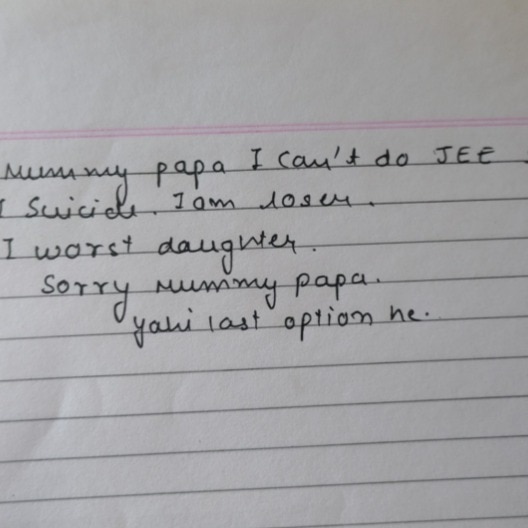 Mummy papa I can't do JEE.
I Suicide. I am loser.
I worst daughter.
Sorry Mummy papa.
yahi last option he.